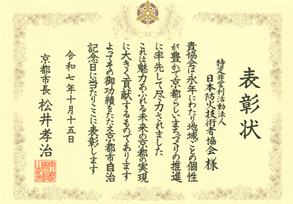 表彰状
特定非営利活動法人
日本防火技術者協会 様
貴協会は永年にわたり地域ごとの個性
が豊かで京都らしいまちづくりの推進
に率先して尽力されました
これは魅力あふれる未来の京都の実現
に大きく貢献するものであります
よってその御功績をたたえ京都市自治
記念日に当たりここに表彰します
令和七年十月十五日
京都市長 松井孝治